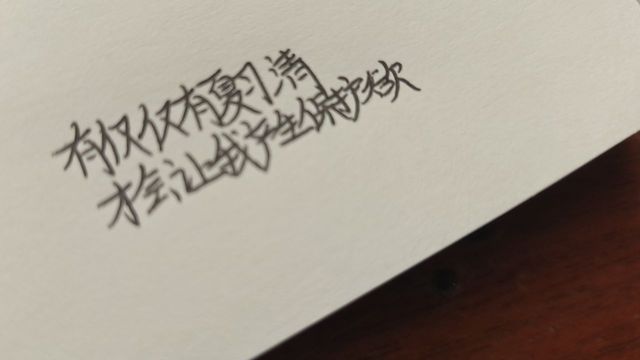 有仅仅有夏习清
才会让我产生保护欲